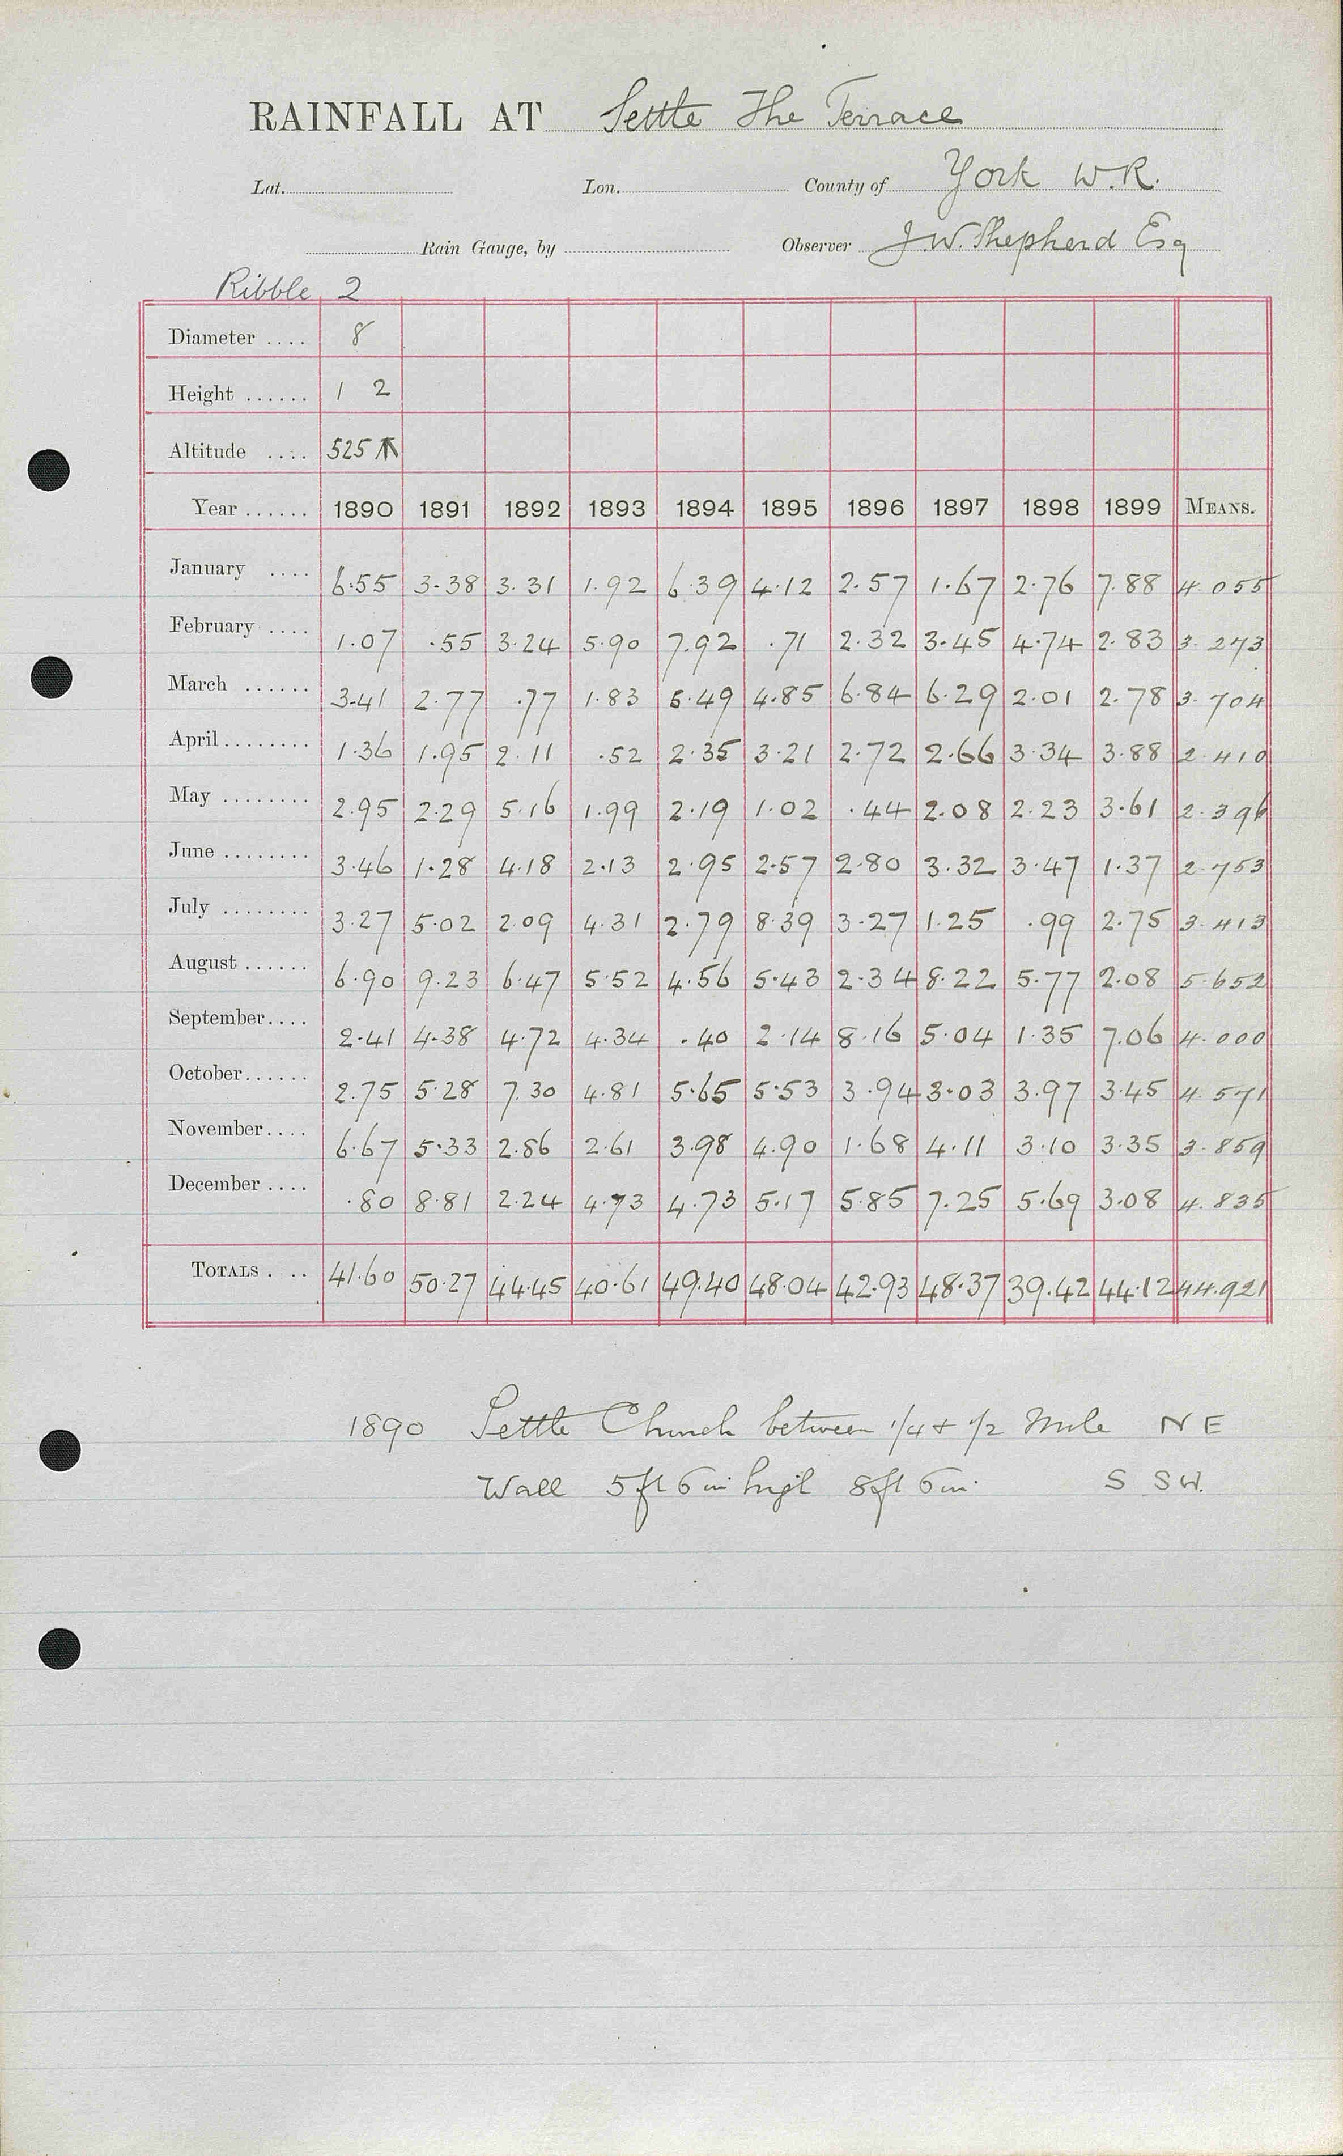 RAINFALL AT Settle The Terrace
Lat. Lon. County of York W.R.
Rain Gauge, by Observer J W. Shepherd Esq
Ribble 2
Diameter .... 8
Height ...... 1 2
Altitude .... 525
Year ...... 1890 1891 1892 1893 1894 1895 1896 1897 1898 1899 MEANS.
January .... 6.55 3.38 3.31 1.92 6.39 4.12 2.57 1.67 2.76 7.88 4.055
February .... 1.07 .55 3.24 5.90 7.92 .71 2.32 3.45 4.74 2.83 3.273
March ...... 3.41 2.77 .77 1.83 5.49 4.85 6.84 6.29 2.01 2.78 3.704
April ........ 1.36 1.95 2.11 .52 2.35 3.21 2.72 2.66 3.34 3.88 2.410
May ........ 2.95 2.29 5.16 1.99 2.19 1.02 .44 2.08 2.23 3.61 2.396
June ........ 3.46 1.28 4.18 2.13 2.95 2.57 2.80 3.32 3.47 1.37 2.753
July ........ 3.27 5.02 2.09 4.31 2.79 8.39 3.27 1.25 .99 2.75 3.413
August ...... 6.90 9.23 6.47 5.52 4.56 5.43 2.34 8.22 5.77 2.08 5.652
September.... 2.41 4.38 4.72 4.34 .40 2.14 8.16 5.04 1.35 7.06 4.000
October...... 2.75 5.28 7.30 4.81 5.65 5.53 3.94 3.03 3.97 3.45 4.571
November.... 6.67 5.33 2.86 2.61 3.98 4.90 1.68 4.11 3.10 3.35 3.859
December .... .80 8.81 2.24 4.73 4.73 5.17 5.85 7.25 5.69 3.08 4.835
TOTALS . .. 41.60 50.27 44.45 40.61 49.40 48.04 42.93 48.37 39.42 44.12 44.921
1890 Settle Church between 1/4 + 1/2 Mile N E
Wall 5 ft 6 in high 8 ft 6 in. S SW.